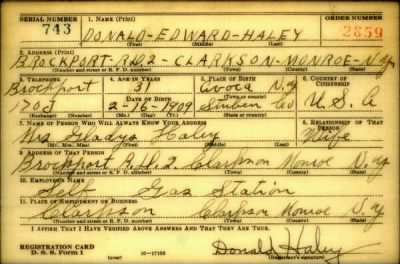 SERIAL NUMBER 1. NAME (Print) ORDER NUMBER
743 DONALD-EDWARD-HALEY 2859
(First) (Middle) (Last)
2. ADDRESS (Print)
BROCKPORT-R.D.2-CLARKSON-MONROE-N.Y.
(Number and street or R. F. D. number) (Town) (County) (State)
3. TELEPHONE 4. AGE IN YEARS 5. PLACE OF BIRTH 6. COUNTRY OF CITIZENSHIP
Brockport 31 Avoca N.Y.
DATE OF BIRTH
170J 2-16-1909 Stuben Co U.S.A
(Mo.) (Day) (Yr.)
7. NAME OF PERSON WHO WILL ALWAYS KNOW YOUR ADDRESS 8. RELATIONSHIP OF THAT PERSON
Mrs Gladys Haley Wife
(Mr., Mrs., Miss) (First) (Middle) (Last)
9. ADDRESS OF THAT PERSON
Brockport R.D.2. Clarkson Monroe N.Y.
(Number and street or R. F. D. number) (Town) (County) (State)
10. EMPLOYER'S NAME
Self Gas Station
11. PLACE OF EMPLOYMENT OR BUSINESS
Clarkson Clarkson Monroe N.Y.
(Number and street or R. F. D. number) (Town) (County) (State)
I AFFIRM THAT I HAVE VERIFIED ABOVE ANSWERS AND THAT THEY ARE TRUE.
REGISTRATION CARD
D. S. S. Form 1 16-17105 Donald Haley
(Registrant's signature)